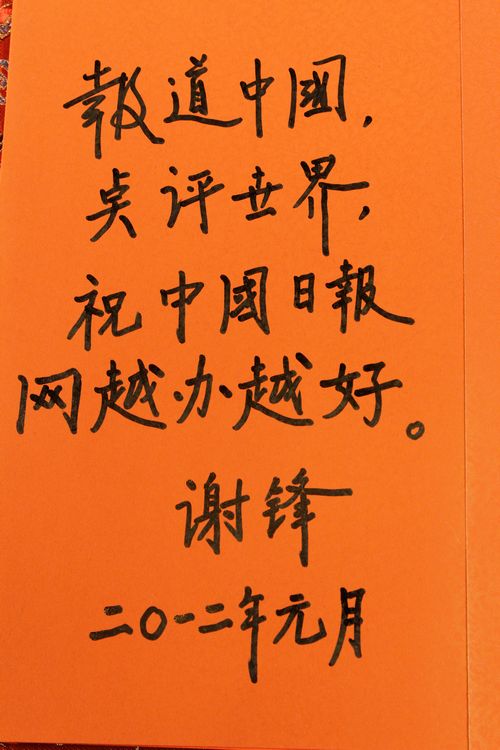 報道中國,
点评世界,
祝中國日報
网越办越好。
谢锋
二〇一二年元月